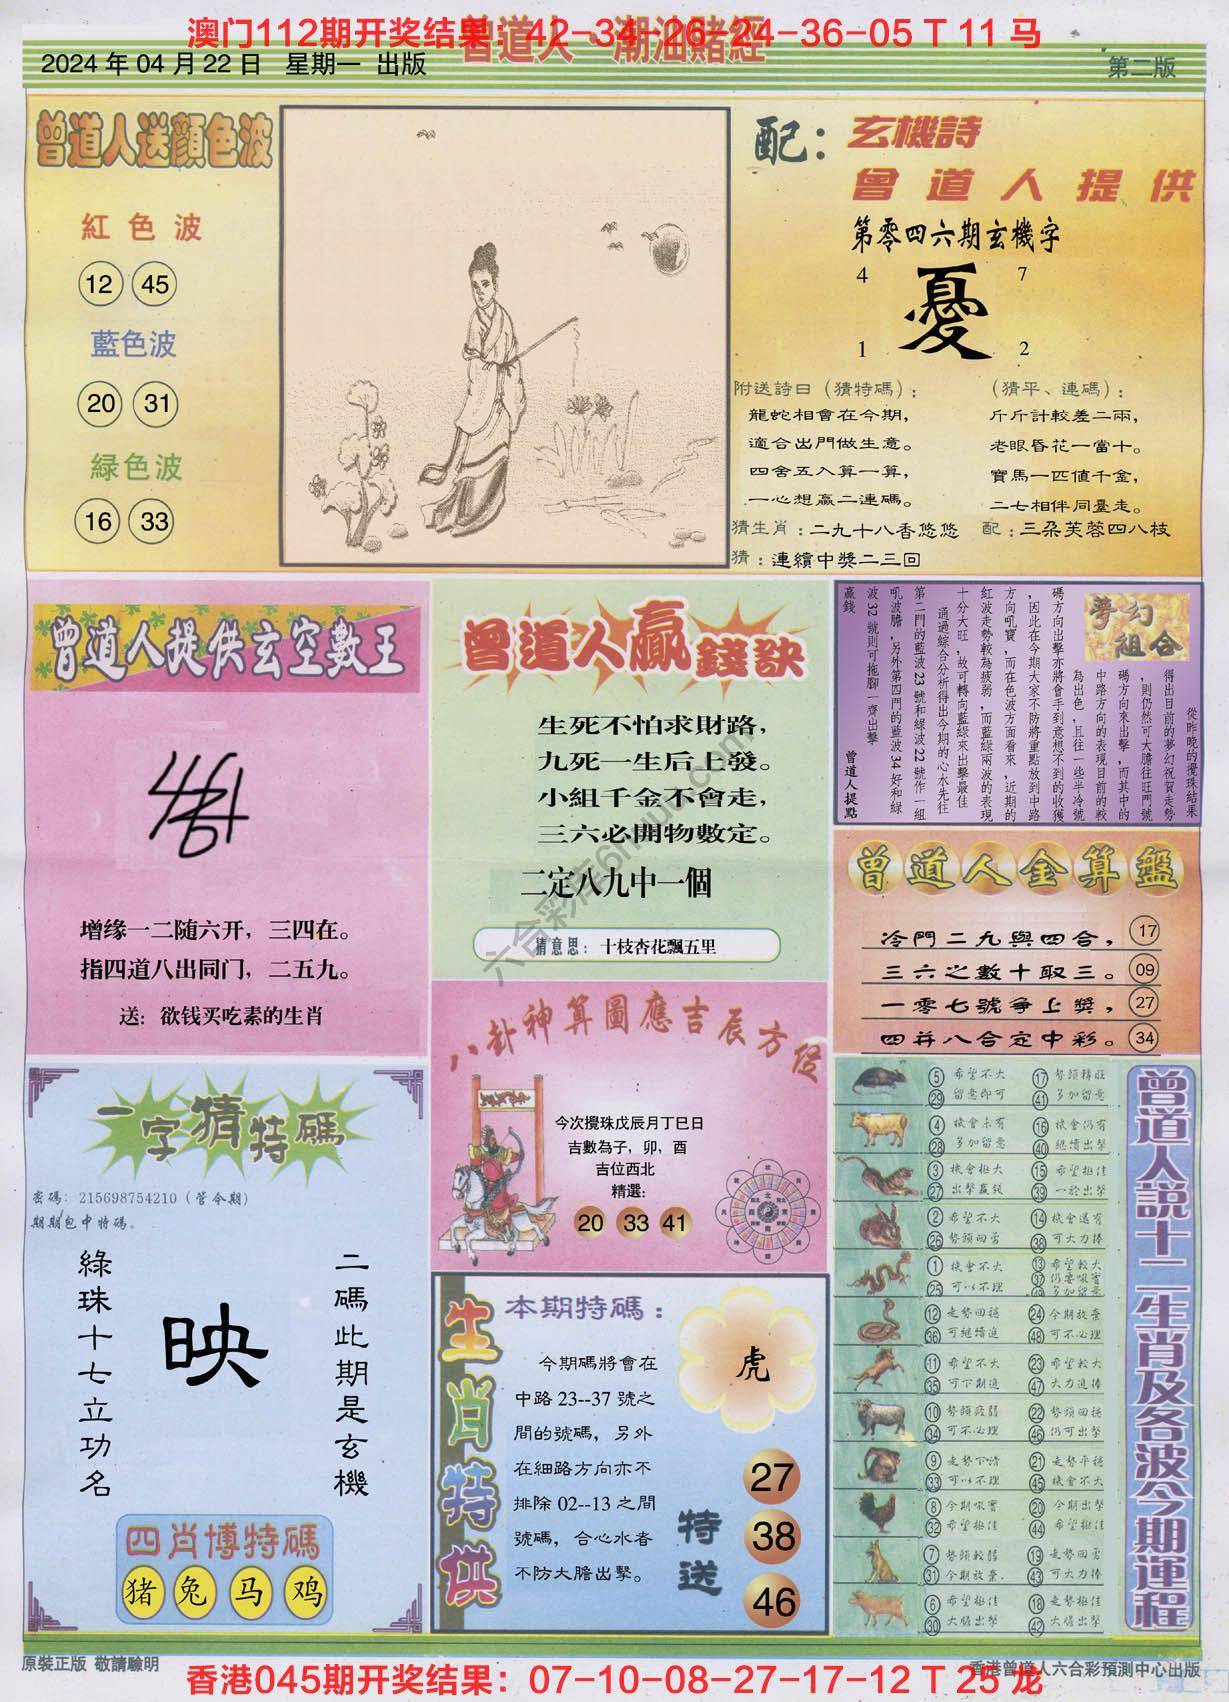 澳门112期开奖结果：42-34-26-24-36-05 T 11 马
曾道人·潮汕賭經
2024 年 04 月 22 日 星期一 出版
第二版
曾道人送顔色波
紅色波
12 45
藍色波
20 31
緑色波
16 33
配：
玄機詩
曾道人提供
第零四六期玄機字
4 7
憂
1 2
附送詩曰（猜特碼）：
龍蛇相會在今期，
適合出門做生意。
四舍五入算一算，
一心想贏二連碼。
（猜平、連碼）：
斤斤計較差二兩，
老眼昏花一當十。
寶馬一匹值千金，
二七相伴同臺走。
猜生肖：二九十八香悠悠 配：三朵芙蓉四八枝
猜：連續中獎二三回
曾道人提供玄空數王
增缘一二随六开，三四在。
指四道八出同门，二五九。
送：欲钱买吃素的生肖
曾道人贏錢訣
生死不怕求財路，
九死一生后上發。
小組千金不會走，
三六必開物數定。
二定八九中一個
猜意思：十枝杏花飄五里
夢幻
組合
從昨晚的攪珠結果
得出目前的夢幻祝賀走勢
，則仍然可大膽往旺門號
碼方向來出擊，而其中的
中路方向的表現目前的較
為出色，且往一些半冷號
碼方向出擊亦將會手到意想不到的收獲
，因此在今期大家不防將重點放到中路
方向吼寶，而在色波方面看來，近期的
紅波走勢較為疲弱，而藍綠兩波的表現
十分大旺，故可轉向藍綠來出擊最佳
通過綜合分析得出今期的心水先往
第二門的藍波23號和綠波22號作一組
吼波膽，另外第四門的藍波34好和綠
波32號則可拖腳一齊出擊
贏錢
曾道人提點
曾道人金算盤
冷門二九與四合， 17
三六之數十取三。 09
一零七號爭上獎， 27
四并八合定中彩。 34
八卦神算圖應吉辰方位
今次攪珠戊辰月丁巳日
吉數為子，卯，酉
吉位西北
精選：
20 33 41
一字猜特碼
密碼：215698754210（管令期）
期期包中特碼。
二碼此期是玄機
映
綠珠十七立功名
四肖博特碼
猪 兔 马 鸡
生肖特供
本期特碼：
今期碼將會在
中路 23--37 號之
間的號碼，另外
在細路方向亦不
排除 02--13 之間
號碼，合心水者
不防大膽出擊。
虎
特送
27
38
46
曾道人説十二生肖及各波今期運程
5 希望不大 17 勢頭轉旺
29 留意即可 41 多加留意
4 機會未有 16 機會仍有
28 多加留意 40 繼續出擊
3 機會極大 15 希望極佳
27 出擊贏錢 39 一於出擊
2 希望不大 14 機會還有
26 勢頭回勇 38 可大力捧
1 機會不大 13 希望較大
25 可以不理 37 仍要吼實
多加留意
12 走勢回穩 24 今期放棄
36 可繼續追 48 可不必理
11 希望不大 23 希望較大
35 可下期追 47 大力追捧
10 勢頭疲弱 22 勢頭回穩
34 可不必理 46 仍可出擊
9 走勢不清 21 走勢平穩
33 可以不理 45 機會不大
8 今期吼實 20 今期出擊
32 希望極佳 44 希望極佳
7 勢頭較弱 19 走勢回勇
31 今期放棄. 43 可大力捧
6 希望極佳 18 走勢極佳
30 大膽出擊 42 大膽出擊
原裝正版 敬請驗明
香港045期开奖结果：07-10-08-27-17-12 T 25 龙
香港曾道人六合彩預測中心出版